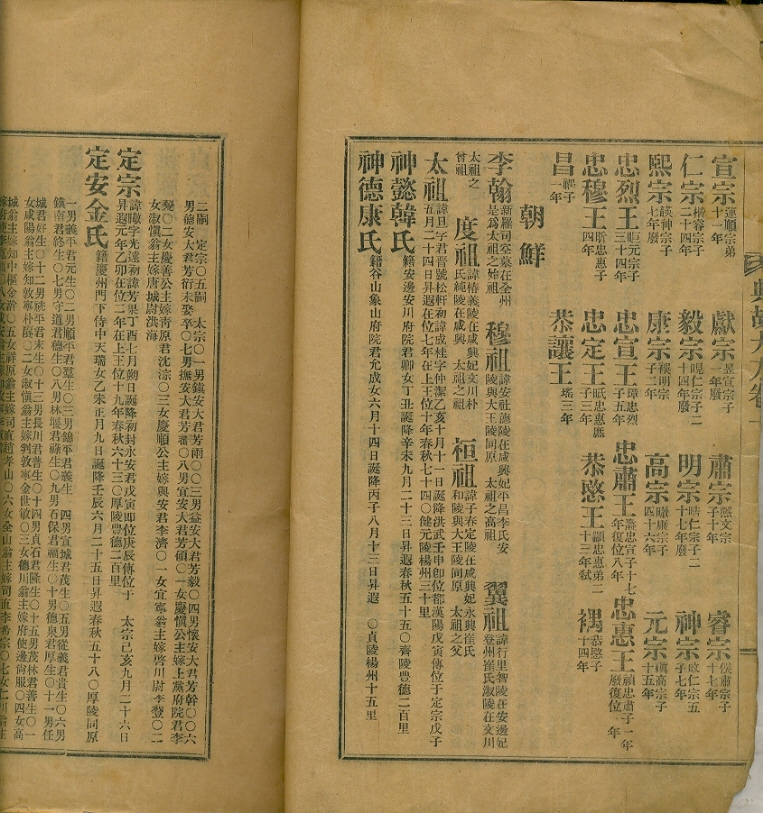 宣宗運順宗弟十一年 獻宗昱宣宗子一年 肅宗熙文宗子十年 睿宗俁肅宗子十七年
仁宗楷睿宗子二十四年 毅宗晛仁宗子二十四年廢 明宗晧仁宗子二十七年廢 神宗晫仁宗五子七年
熙宗韺神宗子七年廢 康宗祦明宗子二年 高宗㬚康宗子四十六年 元宗禃高宗子十五年
忠烈王昛元宗子三十四年 忠宣王璋忠烈子五年 忠肅王燾忠宣子十七年復位八年 忠惠王禎忠肅子一年廢復位 年
忠穆王昕忠惠子四年 忠定王㫝忠惠庶子三年 恭愍王顓忠惠弟二十三年弑 禑恭愍子十四年
昌禑子一年 恭讓王瑤三年
朝鮮
李翰新羅司空墓在全州是爲太祖之始祖 穆祖諱安社德陵在咸興妃平昌李氏安陵與大王陵同原 太祖之高祖 翼祖諱行里智陵在安邊妃登州崔氏淑陵在文川
太祖之曾祖 度祖諱椿義陵在咸興妃文川朴氏純陵在咸興 太祖之祖 桓祖諱子春定陵在咸興妃永興崔氏和陵與大王陵同原 太祖之父
太祖諱旦字君晉號松軒初諱成桂字仲潔乙亥十月十一日誕降洪武壬申卽位都漢陽戊寅傳位于定宗戊子五月二十四日昇遐在位七年在上王位十年春秋七十四〇健元陵楊州三十里
神懿韓氏籍安邊安川府院君卿女丁丑誕降辛未九月二十三日昇遐春秋五十五〇齊陵豊德二百里
神德康氏籍谷山象山府院君允成女六月十四日誕降丙子八月十三日昇遐 〇貞陵楊州十五里
二嗣 定宗〇五嗣 太宗〇一男鎭安大君芳雨〇〇三男益安大君芳毅〇四男懷安大君芳幹〇〇六
男德安大君芳衍未娶卒〇七男撫安大君芳蕃〇八男宜安大君芳碩〇一女慶愼公主嫁上黨府院君李
薆〇二女慶善公主嫁靑原君沈淙〇三女慶順公主嫁興安君李濟〇一女宜寧翁主嫁啓川尉李䔲〇二
女淑愼翁主嫁唐城尉洪海
定宗諱曔字光遠初諱芳果丁酉七月朔日誕降初封永安君戊寅卽位庚辰傳位于 太宗己亥九月二十六日昇遐元年乙卯在位二年在上王位十九年春秋六十三〇厚陵豊德二百里
定安金氏籍慶州門下侍中天瑞女乙未正月九日誕降壬辰六月二十五日昇遐春秋五十八〇厚陵同原
一男義平君元生〇二男順平君羣生〇三男錦平君義生 四男宣城君茂生〇五男從義君貴生〇六男
鎭南君終生〇七男守道君德生〇八男林堰君祿生〇九男石保君福生〇十男德泉君厚生〇十一男任
城君好生〇十二男桃平君末生〇十三男長川君普生〇十四男貞石君隆生〇十五男茂林君善生〇一
女咸陽翁主嫁知敦寧朴賡〇二女淑愼翁主嫁判敦寧金世敏〇三女德川翁主嫁府使邊尙服〇四女高
城翁主嫁知中樞金澣〇五女祥原翁主嫁司直趙孝山〇六女全山翁主嫁司直李希宗〇七女仁川翁主